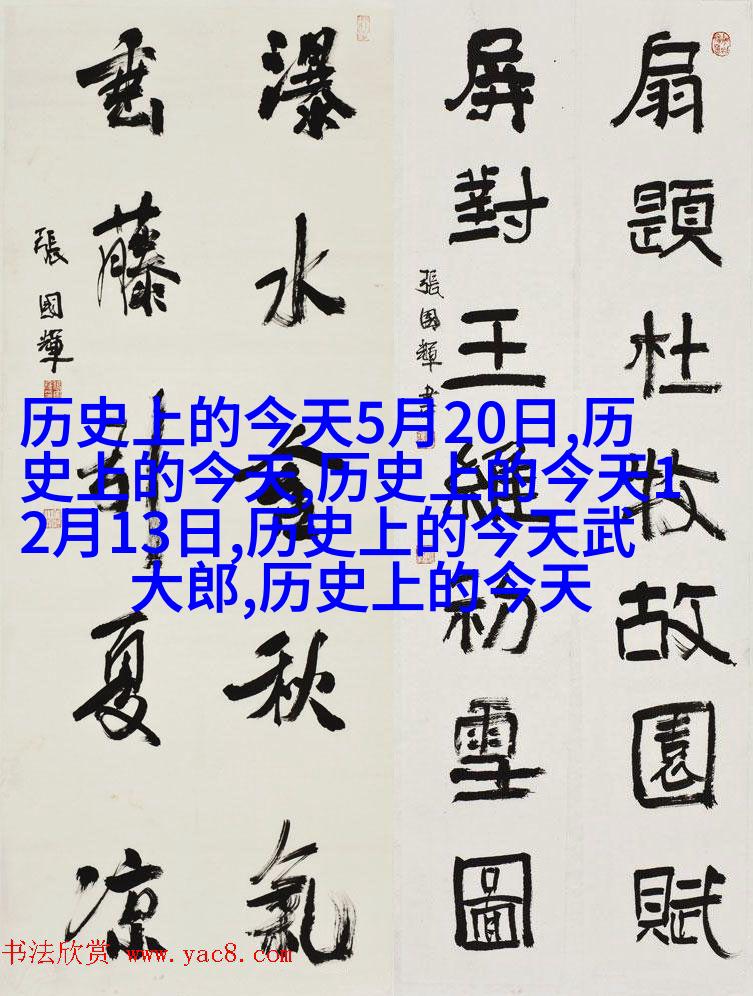 扇題杜牧故園賦
屏對王維初雪圖
張國輝書
瀑水含秋氣
垂藤引夏涼
張國輝
历史上的今天5月20日,历
史上的今天,历史上的今天1
2月13日,历史上的今天武
大郎,历史上的今天
书法欣赏 www.yac8.com